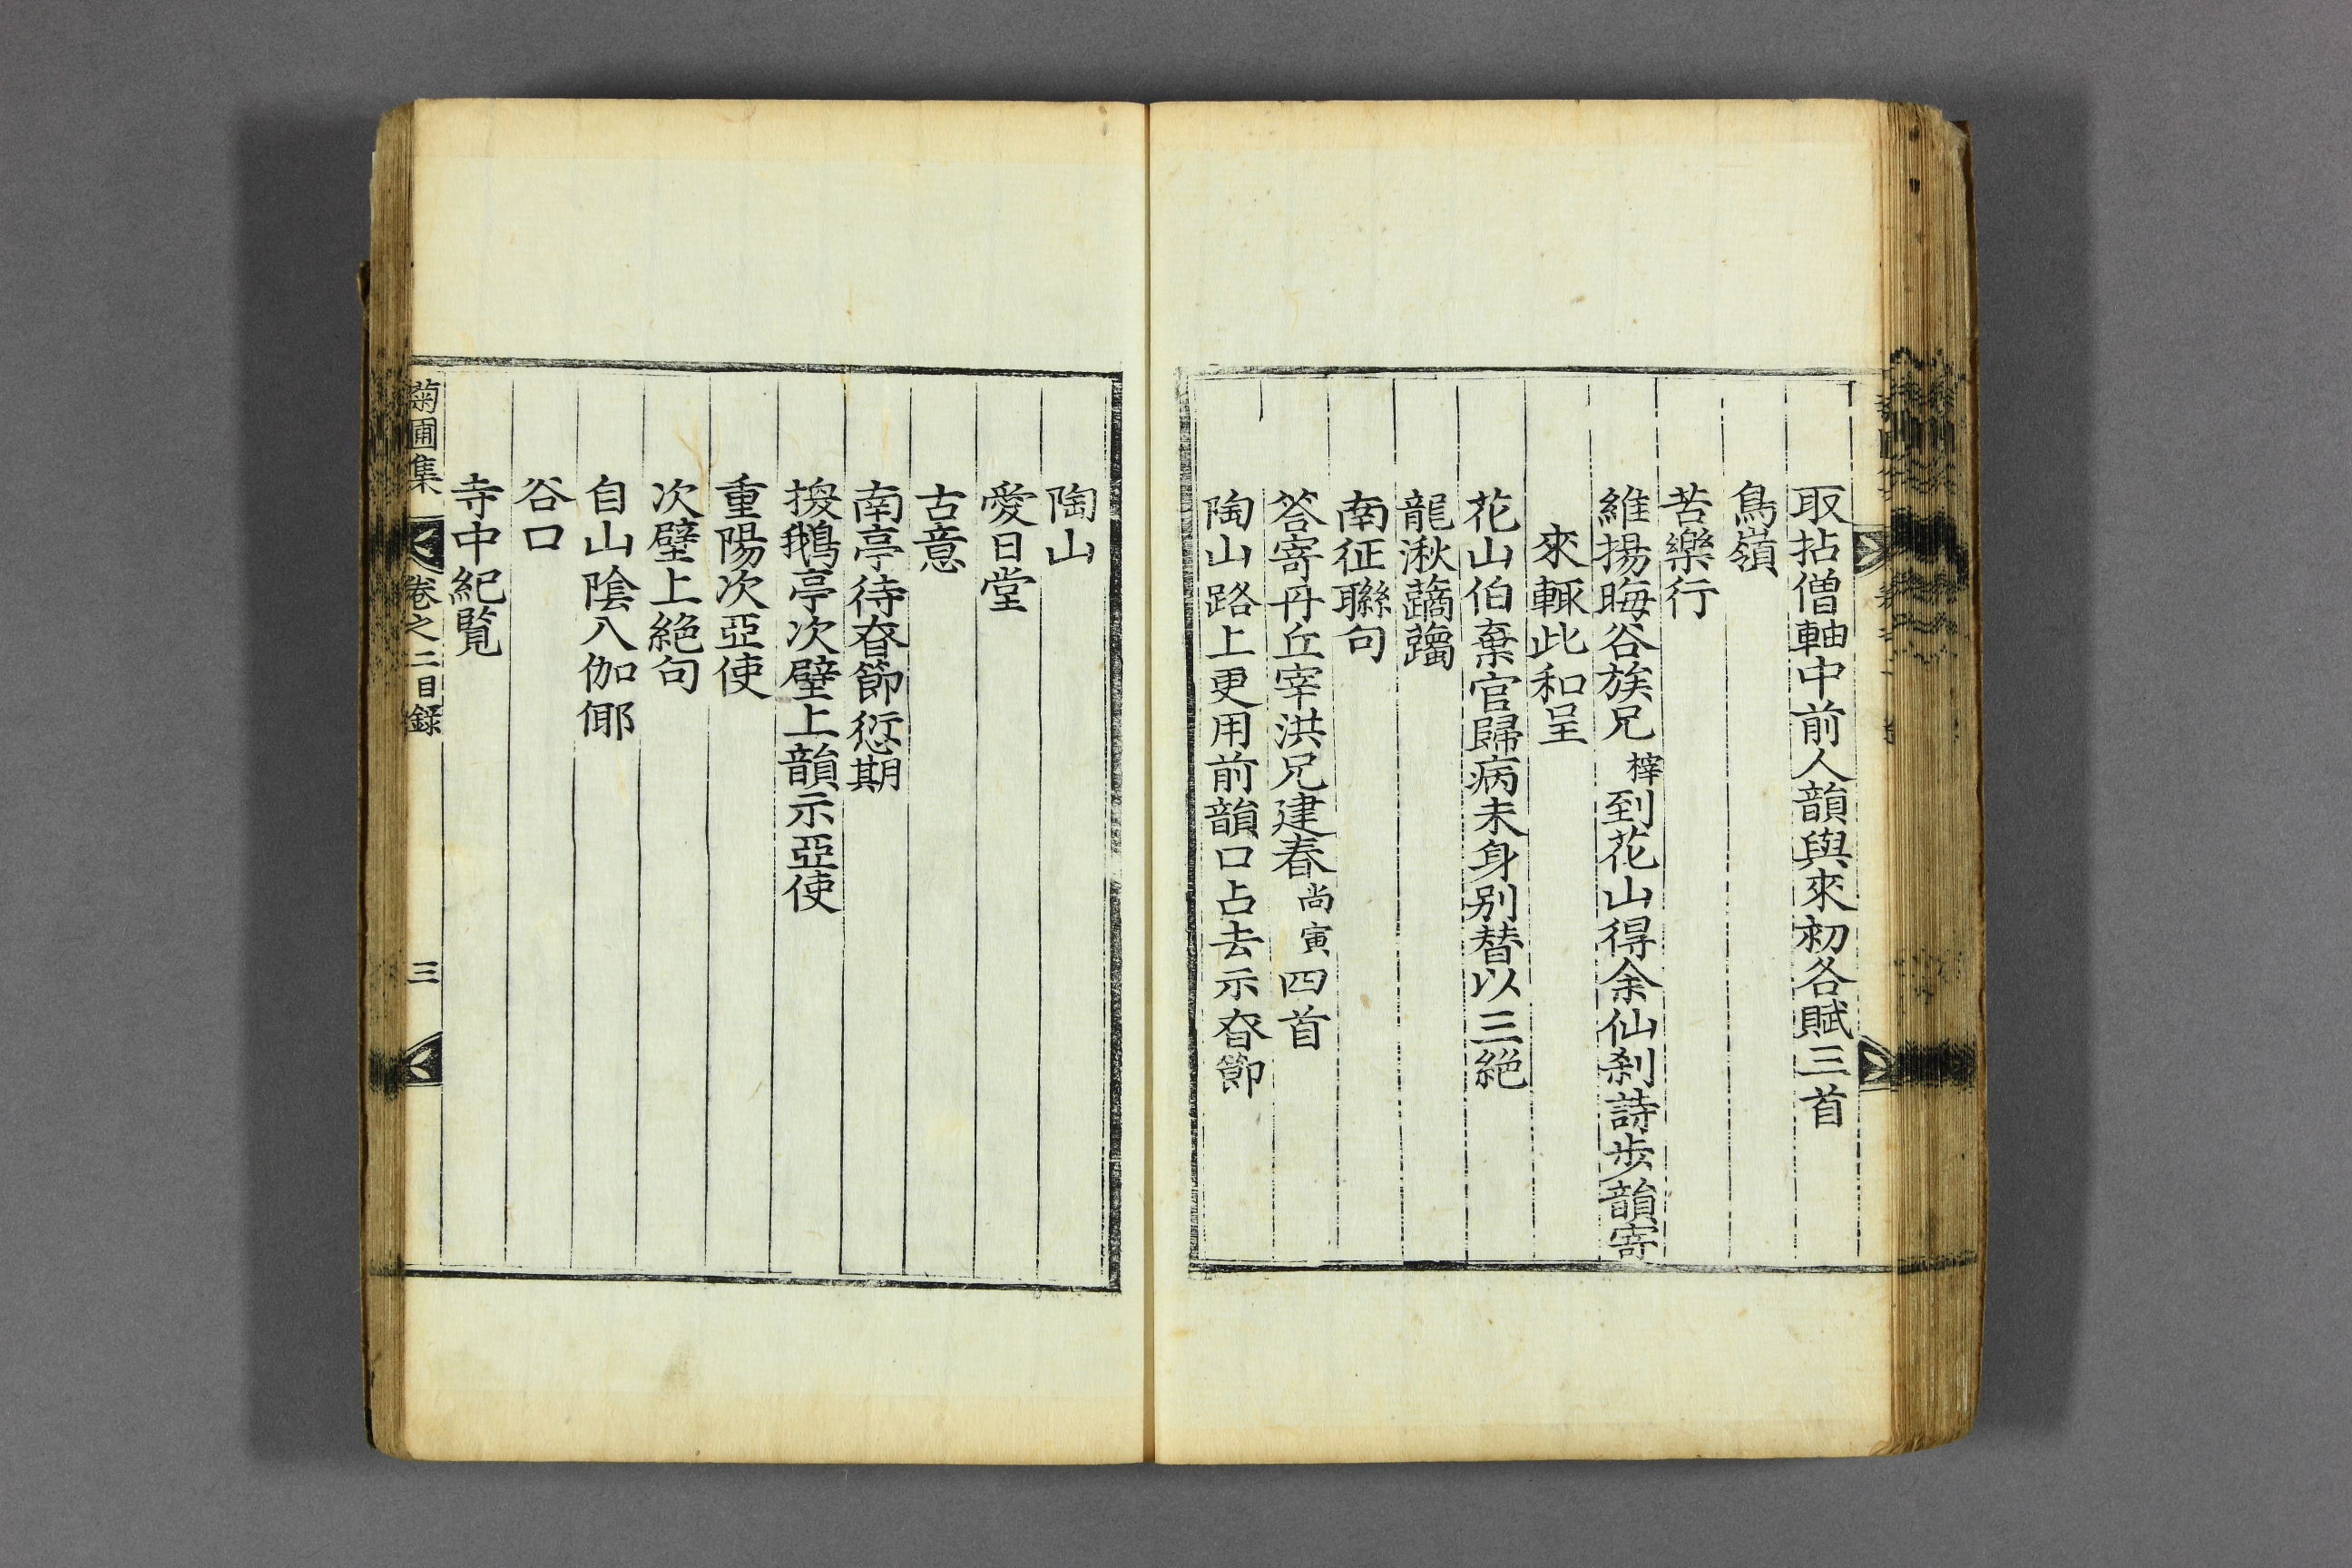 取拈僧軸中前人韻與來初各賦三首
鳥嶺
苦樂行
維揚晦谷族兄 榟 到花山得余仙刹詩步韻寄
來輒此和呈
花山伯棄官歸病未身别替以三絶
龍湫躑躅
南征聯句
答寄丹丘宰洪兄建春 尚寅 四首
陶山路上更用前韻口占去示昚節
陶山
愛日堂
古意
南亭待昚節愆期
換鵝亭次壁上韻示亞使
重陽次亞使
次壁上絶句
自山陰入伽倻
谷口
寺中紀覧
菊圃集 卷之二目録 三